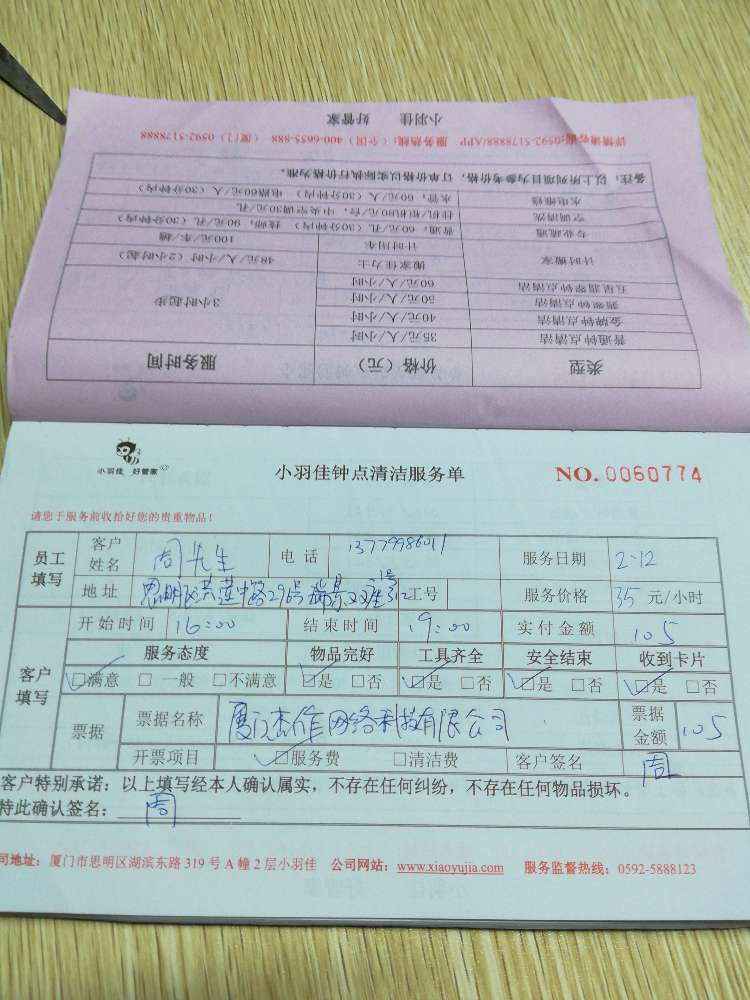 小羽佳 好管家
详情请咨询:0592-5178888/APP 服务热线:(全国)400-6655-888 (厦门)0592-5178888
类型 价格(元) 服务时间
普通钟点清洁 35元/小时 3小时起步
金牌钟点清洁 40元/小时
翡翠钟点清洁 50元/小时
五星翡翠钟点清洁 60元/小时
计时搬家 搬家佳力士 48元/人/小时(2小时起)
计时用车 100元/车/趟
专业疏通 普通:60元/孔(30分钟内) 技师:90元/孔(30分钟内)
空调清洗 挂机/柜机80元/台,中央空调30元/孔
水电维修 水管:60元/人(30分钟内) 电路60元/人(30分钟内)
备注:以上所列项目为参考价格,订单价格以实际执行价格为准。
小羽佳 好管家
小羽佳钟点清洁服务单
NO.0060774
请您于服务前收拾好您的贵重物品!
员工填写 客户姓名 周先生 电话 13779986011 服务日期 2-12
地址 思明区莲中路29号瑞景双座1号312 工号 服务价格 35元/小时
客户填写 开始时间 16:00 结束时间 19:00 实付金额 105
服务态度 物品完好 工具齐全 安全结束 收到卡片
☑满意 □一般 □不满意 ☑是 □否 ☑是 □否 ☑是 □否 ☑是 □否
票据 票据名称 厦门杰作网络科技有限公司 票据金额 105
开票项目 ☑服务费 □清洁费 客户签名 周
客户特别承诺:以上填写经本人确认属实,不存在任何纠纷,不存在任何物品损坏。
特此确认签名: 周
司地址:厦门市思明区湖滨东路319号A幢2层小羽佳 公司网站:www.xiaoyujia.com 服务监督热线:0592-5888123